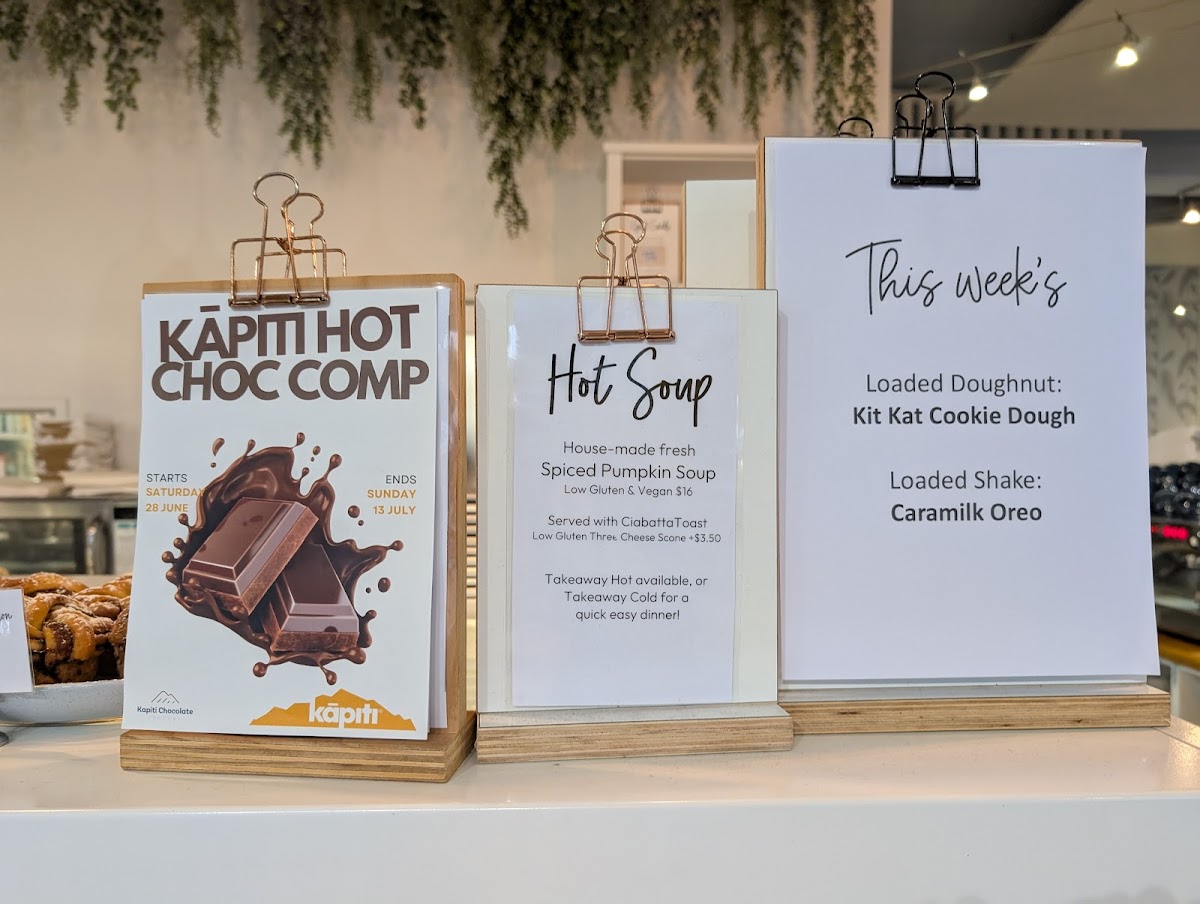 KĀPITI HOT
CHOC COMP
STARTS
SATURDAY
28 JUNE
ENDS
SUNDAY
13 JULY
Kapiti Chocolate
kāpiti
Hot Soup
House-made fresh
Spiced Pumpkin Soup
Low Gluten & Vegan $16
Served with CiabattaToast
Low Gluten Three Cheese Scone +$3.50
Takeaway Hot available, or
Takeaway Cold for a
quick easy dinner!
This week's
Loaded Doughnut:
Kit Kat Cookie Dough
Loaded Shake:
Caramilk Oreo